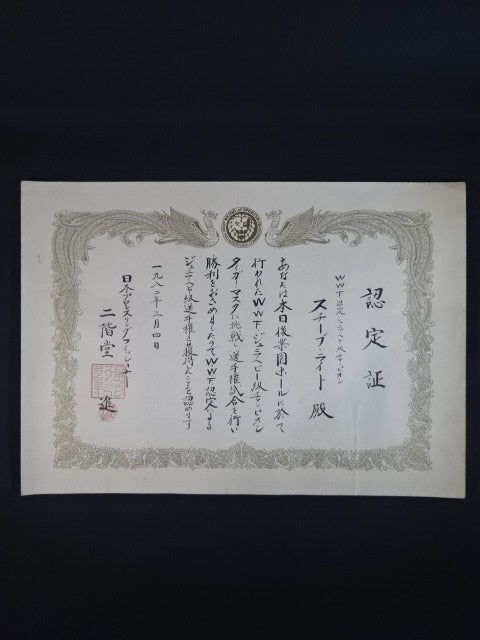 認定証
WWF認定ジュニアヘビー級チャンピオン
スチーブ・ライト 殿
あなたは本日後楽園ホールに於て
行われたWWFジュニアヘビー級チャンピオン
タイガーマスクに挑戦し選手権試合を行い
勝利をおさめましたのでWWF認定による
ジュニアヘビー級選手権を獲得したことを認めます
一九八二年二月四日
日本プロレスリングコミッショナー
二階堂 進